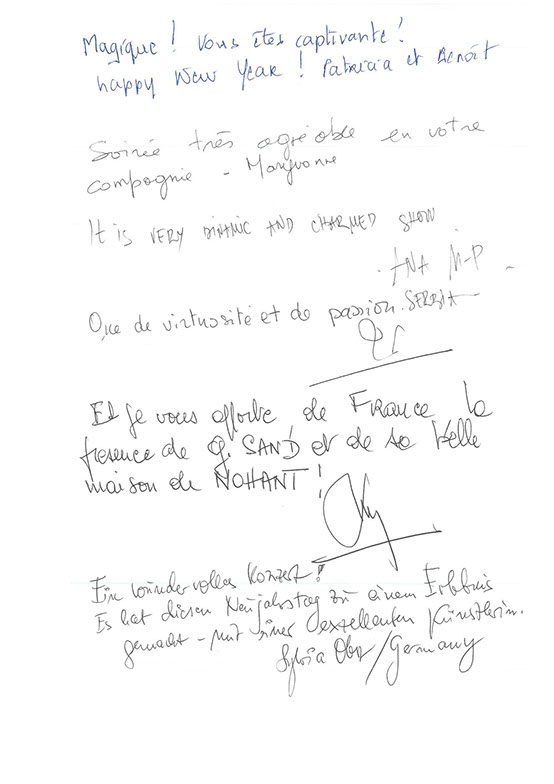 Magique ! Vous êtes captivante !
happy New Year ! Patricia et Benoît
Soirée très agréable en votre
compagnie - Maryvonne
It is VERY DINAMIC AND CHARMED SHOW
ANA M-P
SERBIA
Que de virtuosité et de passion.
Et je vous apporte de France la
presence de G. SAND et de sa belle
maison de NOHANT !
Ein wundervolles Konzert !
Es hat diesen Neujahrstag zu einem Erlebnis
gemacht - mit einer exzellenten Künstlerin.
Sylvia /Germany